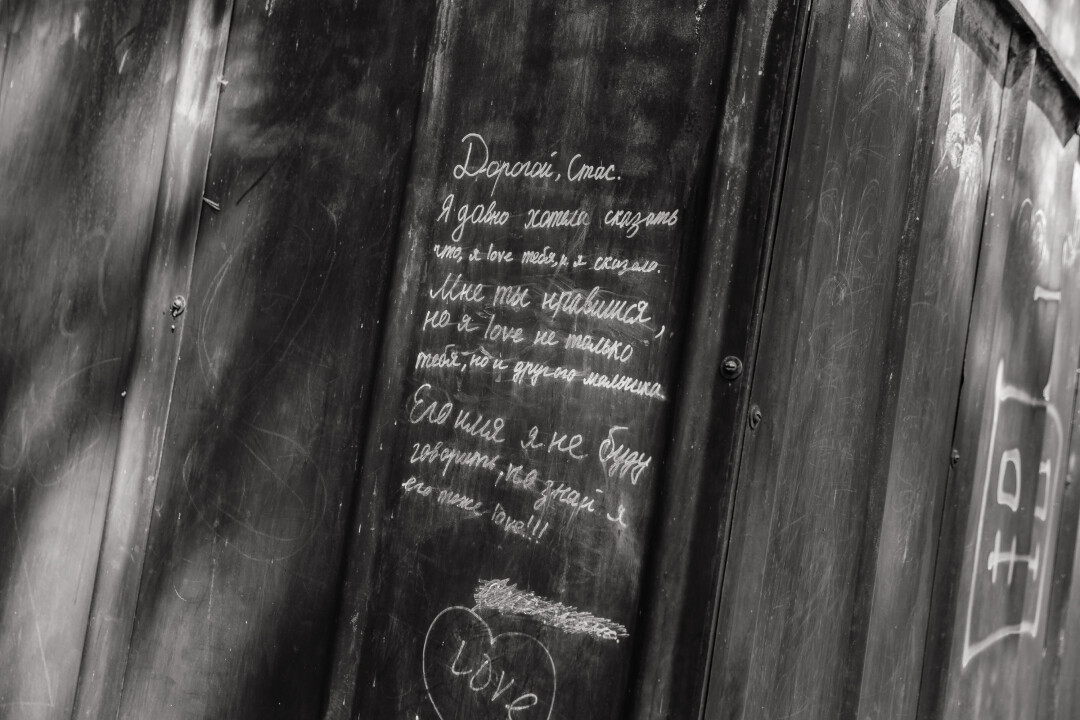 Дорогой, Стас.
Я давно хотела сказать
что, я love тебя, и я сказала.
Мне ты нравишся,
но я love не только
тебя, но и другого мальчика.
Его имя я не буду
говорить, но знай я
его тоже love!!!
Love